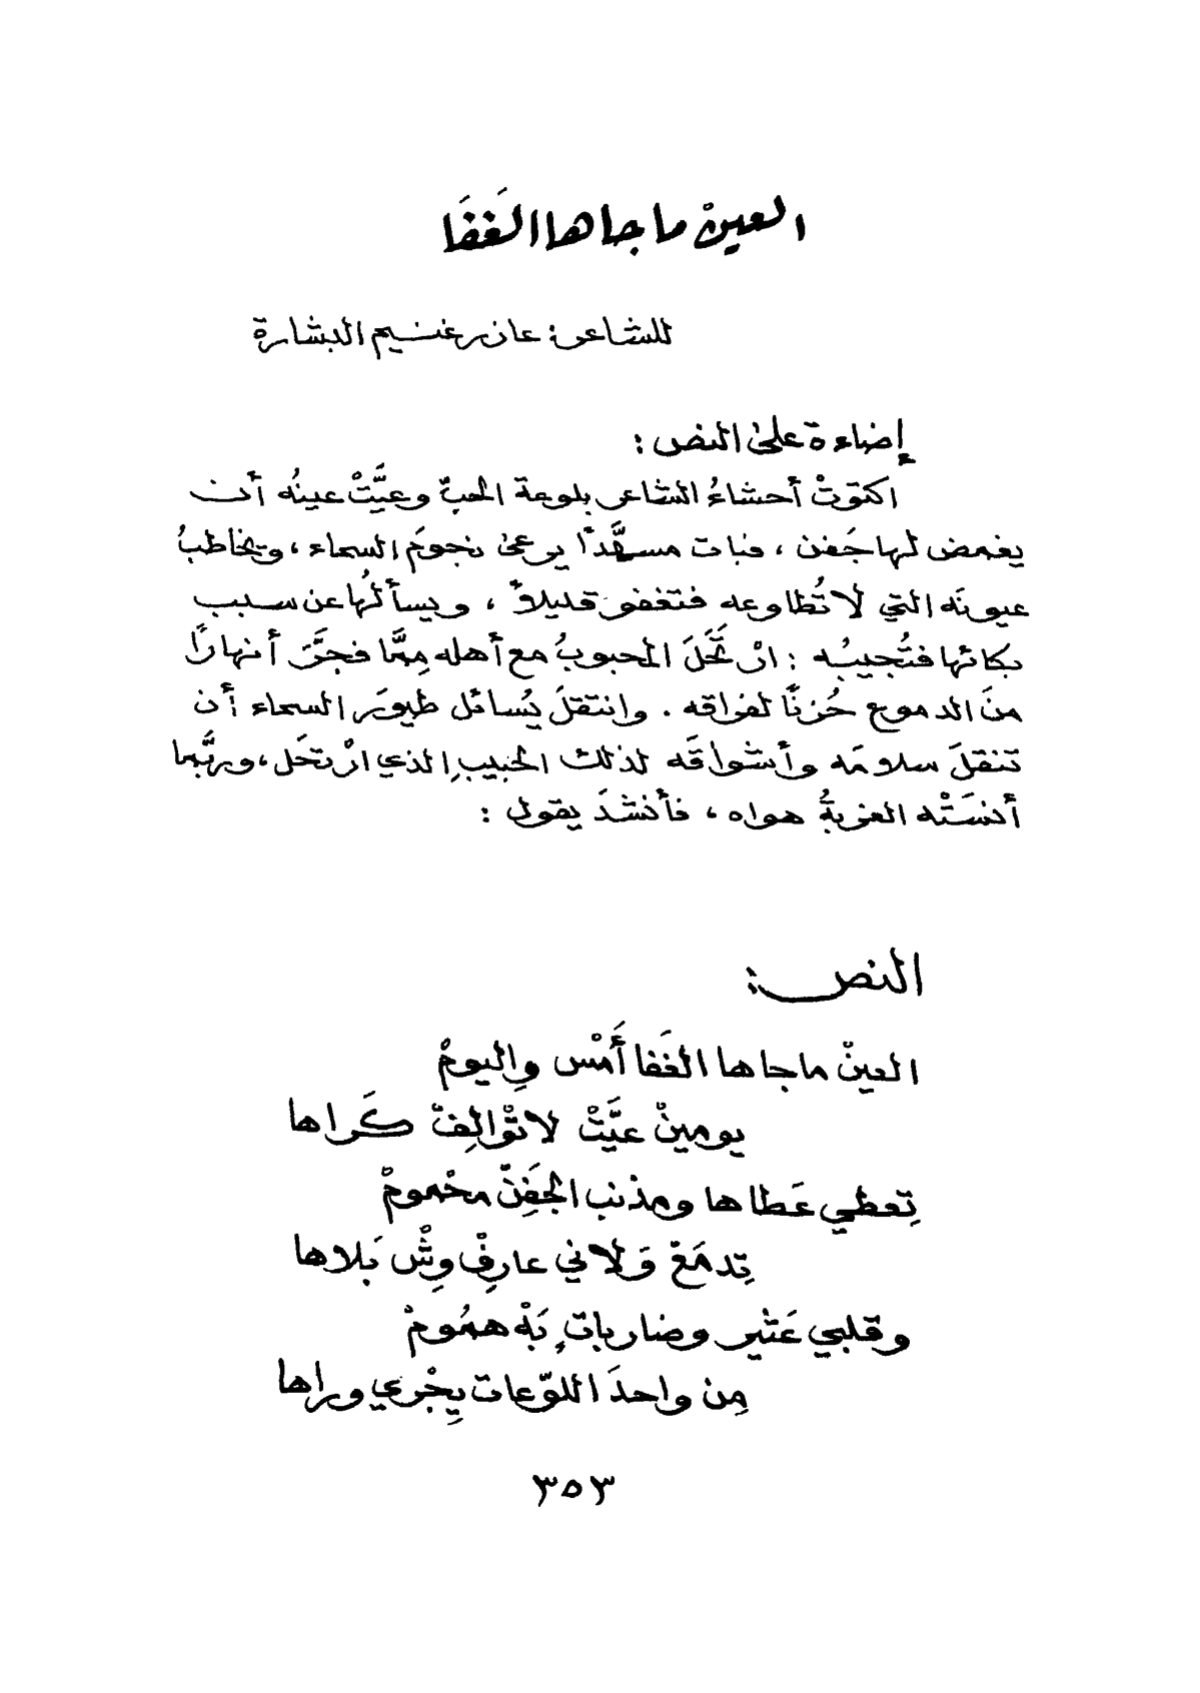 العينْ ما جاها الغَفَا
للشاعر: عازر غنيم البشارة
إضاءة على النص:
اكتوتْ أحشاءُ الشاعر بلوعة الحبِّ وعيَّتْ عينُه أن
يغمض لها جَفن، فبات مسهَّدًا يرعى نجومَ السماء، ويخاطبُ
عيونَه التي لا تُطاوعه فتغفو قليلاً، ويسألُها عن سبب
بكائها فتُجيبُه: ارْتَحَلَ المحبوبُ مع أهله مِمَّا فجَّرَ أنهارًا
منَ الدموع حُزنًا لفراقه. وانتقلَ يُسائل طيورَ السماء أن
تنقلَ سلامَه وأشواقَه لذلك الحبيبِ الذي ارْتحَل، وربَّما
أنسَتْه الغربةُ هواه، فأنشدَ يقول:
النص:
العينْ ما جاها الغَفا أَمْس واِليومْ
يومينْ عيَّتْ لا تْوالِفْ كَراها
تِعطي عَطاها ومذنب الجَفِنْ محْمومْ
تِدمَعْ وَلاني عارِفْ وِشْ بَلاها
وقلبي عَثير وضارباتٍ بَهْ همُومْ
مِن واحدَ اللوّعات يِجْري وراها
٣٥٣